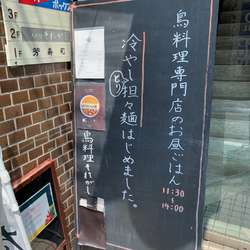 鳥料理専門店のお昼ごはん
11:30
~
14:00
冷やし担々麺はじめました。
とり
鳥料理それがし
3F
2F
1F 芳寿司